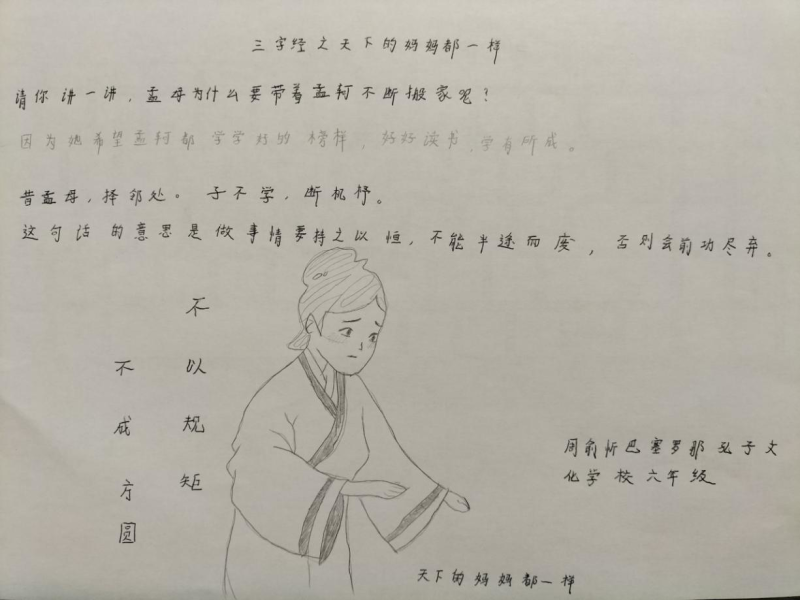 三字经之天下的妈妈都一样
请你讲一讲，孟母为什么要带着孟轲不断搬家呢？
因为她希望孟轲都学学好的榜样，好好读书，学有所成。
昔孟母，择邻处。子不学，断机杼。
这句话的意思是做事情要持之以恒，不能半途而废，否则会前功尽弃。
不以规矩
不成方圆
周俞忻巴塞罗那孔子文
化学校六年级
天下的妈妈都一样